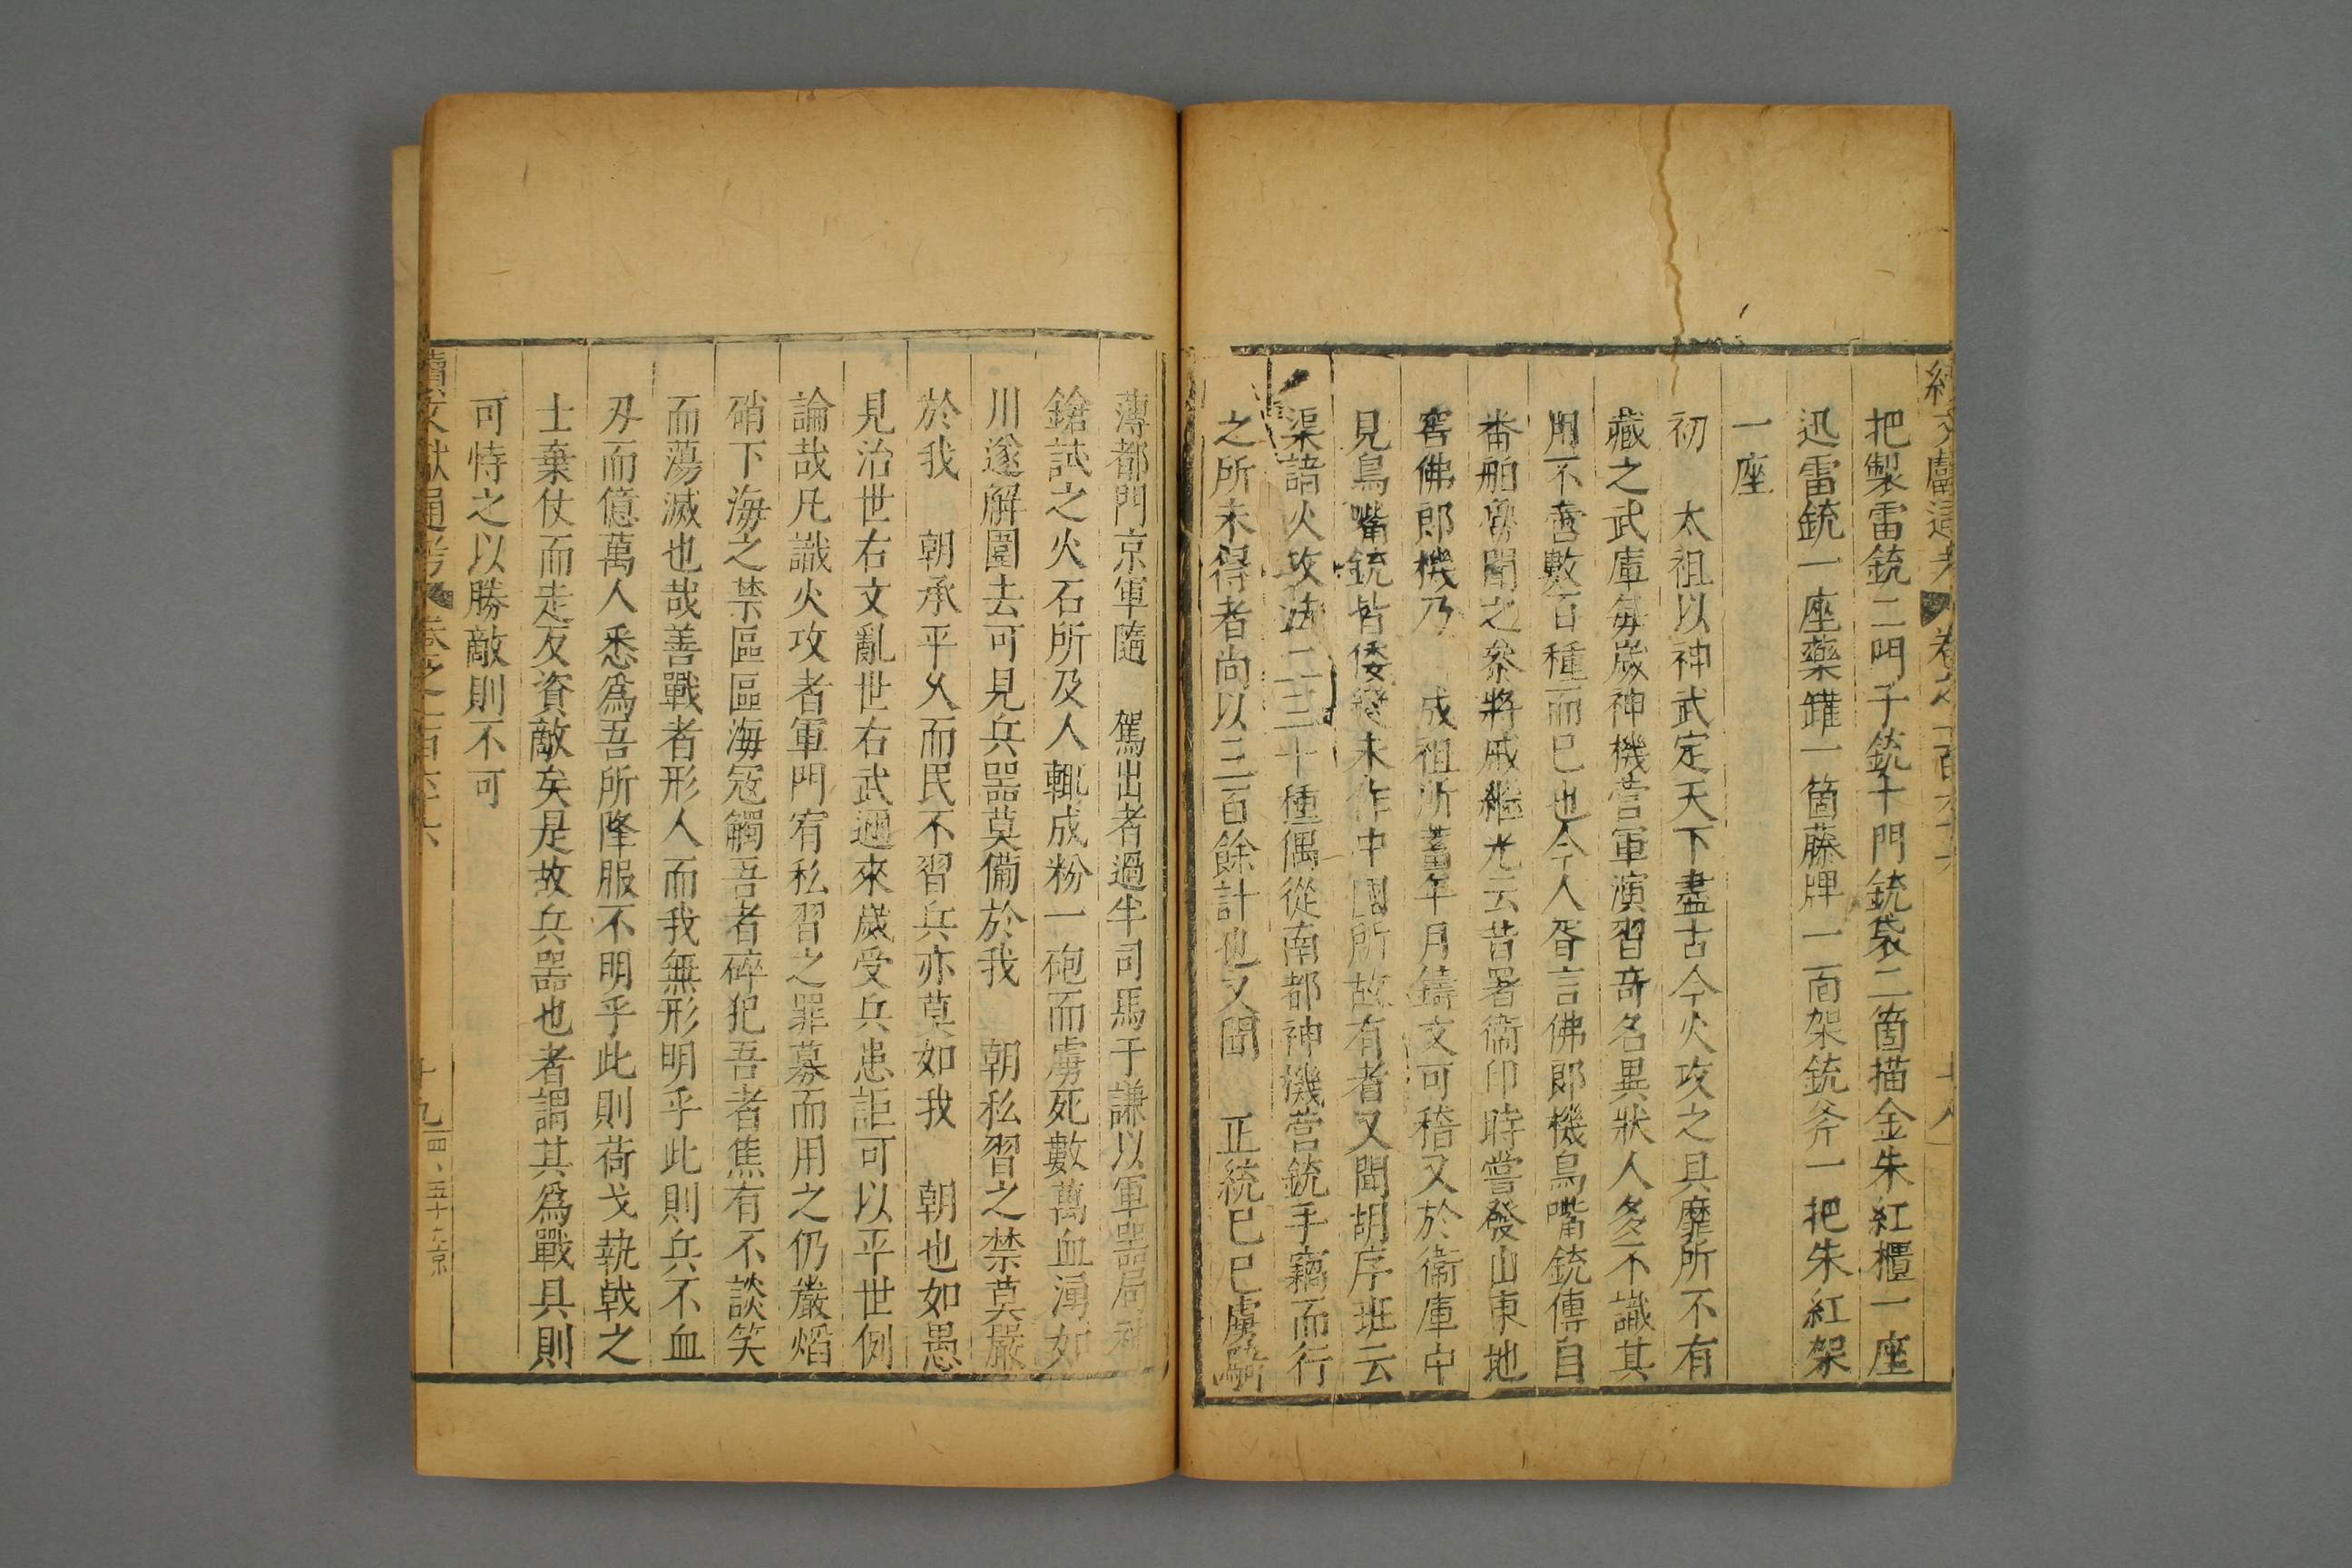 續文獻通考 卷之一百六十六 十八
把製雷銃二門子銃十門銃袋二箇描金朱紅櫃一座
迅雷銃一座藥鑵一箇藤牌一面架銃斧一把朱紅架
一座
初 太祖以神武定天下盡古今火攻之具靡所不有
藏之武庫每歲神機营軍演習奇名異狀人多不識其
用不啻數百種而已也今人胥言佛郎機鳥嘴銃傳自
番舶舅聞之叅將戚繼光云昔署衞印時嘗發山東地
窖佛郎機乃 成祖所蓄年月鑄文可稽又於衞庫中
見鳥嘴銃皆倭變未作中國所故有者又聞胡序班云
渠諳火攻法二三十種偶從南都神機营銃手竊而行
之所未得者尚以三百餘計也又聞 正統己巳虜騎
薄都門京軍隨 駕出者過半司馬于謙以軍器局神
鎗試之火石所及人輒成粉一砲而虜死數萬血湧如
川遂解圍去可見兵器莫備於我 朝私習之禁莫嚴
於我 朝承平乆而民不習兵亦莫如我 朝也如愚
見治世右文亂世右武邇來歲受兵患詎可以平世例
論哉凡識火攻者軍門宥私習之罪募而用之仍嚴焰
硝下海之禁區區海冦觸吾者碎犯吾者焦有不談笑
而蕩滅也哉善戰者形人而我無形明乎此則兵不血
刄而億萬人悉爲吾所降服不明乎此則荷戈執戟之
士棄仗而走反資敵矣是故兵器也者謂其爲戰具則
可恃之以勝敵則不可
續文獻通考 卷之一百六十六 十九 四、五十 京